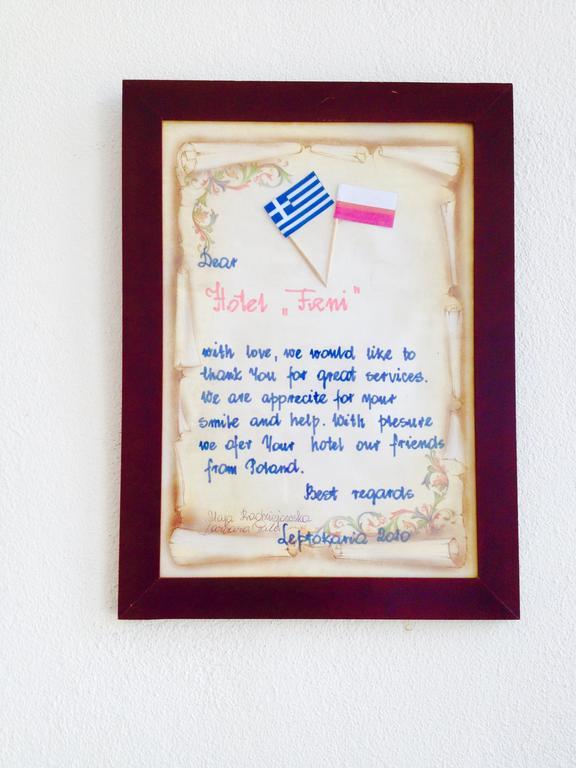 Dear
Hotel „Fæni"
with love, we would like to
thank You for great services.
We are apprecite for your
smile and help. With plesure
we ofer Your hotel our friends
from Poland.
Best regards
Maja
Barbara
Leptokaria 2010